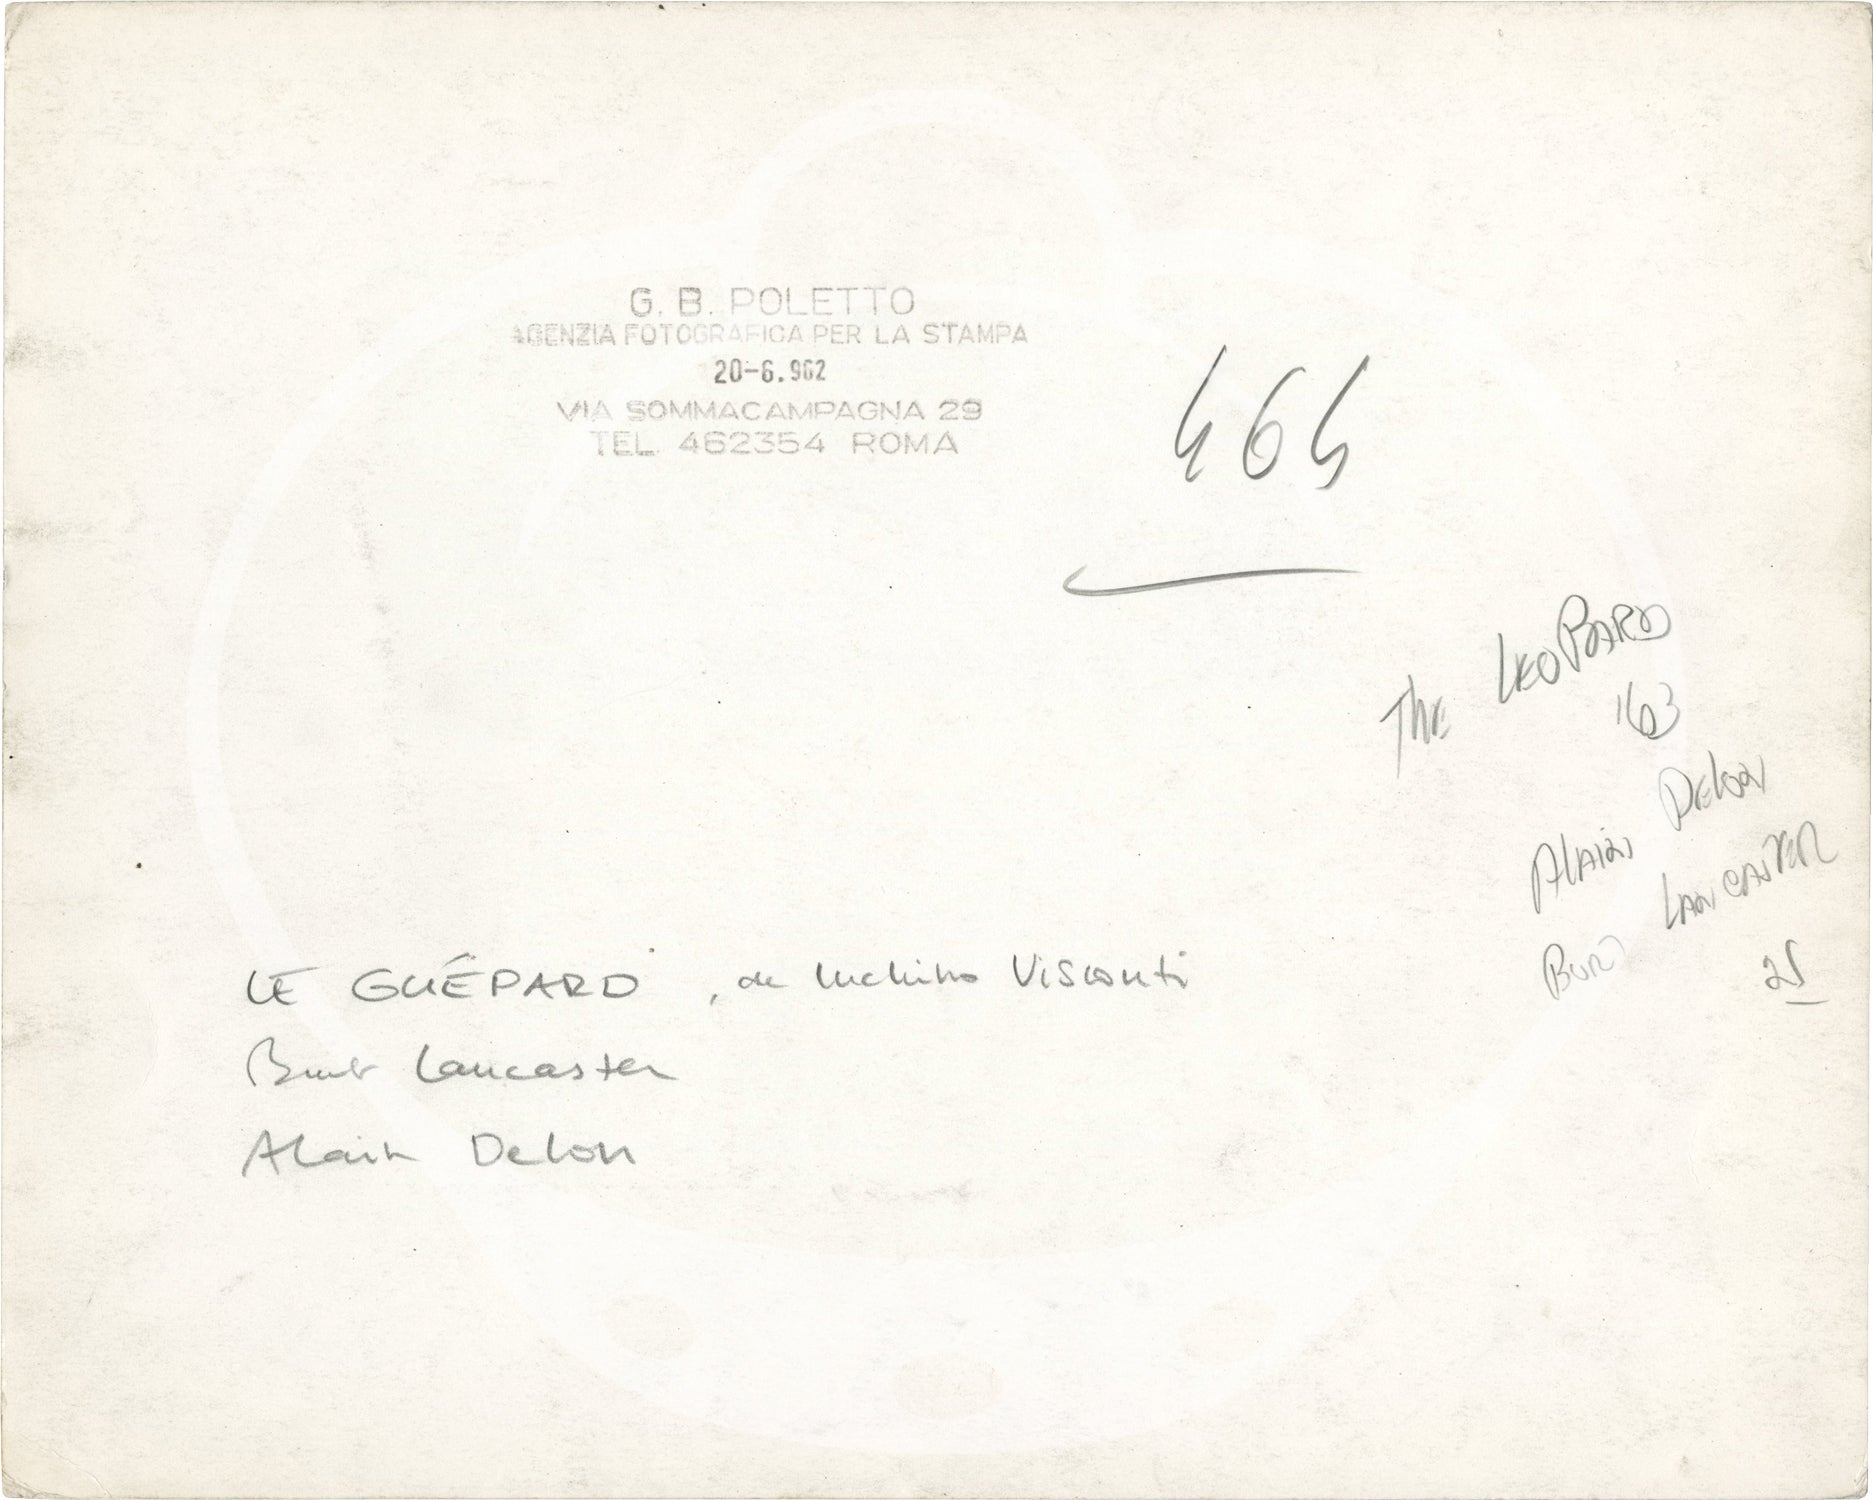 G. B. POLETTO
AGENZIA FOTOGRAFICA PER LA STAMPA
20-6.962
VIA SOMMACAMPAGNA 29
TEL. 462354 ROMA
464
The LEOPARD
'63
ALAIN DELON
BURT LANCASTER
25
LE GUÉPARD, de Luchino Visconti
Burt Lancaster
Alain Delon